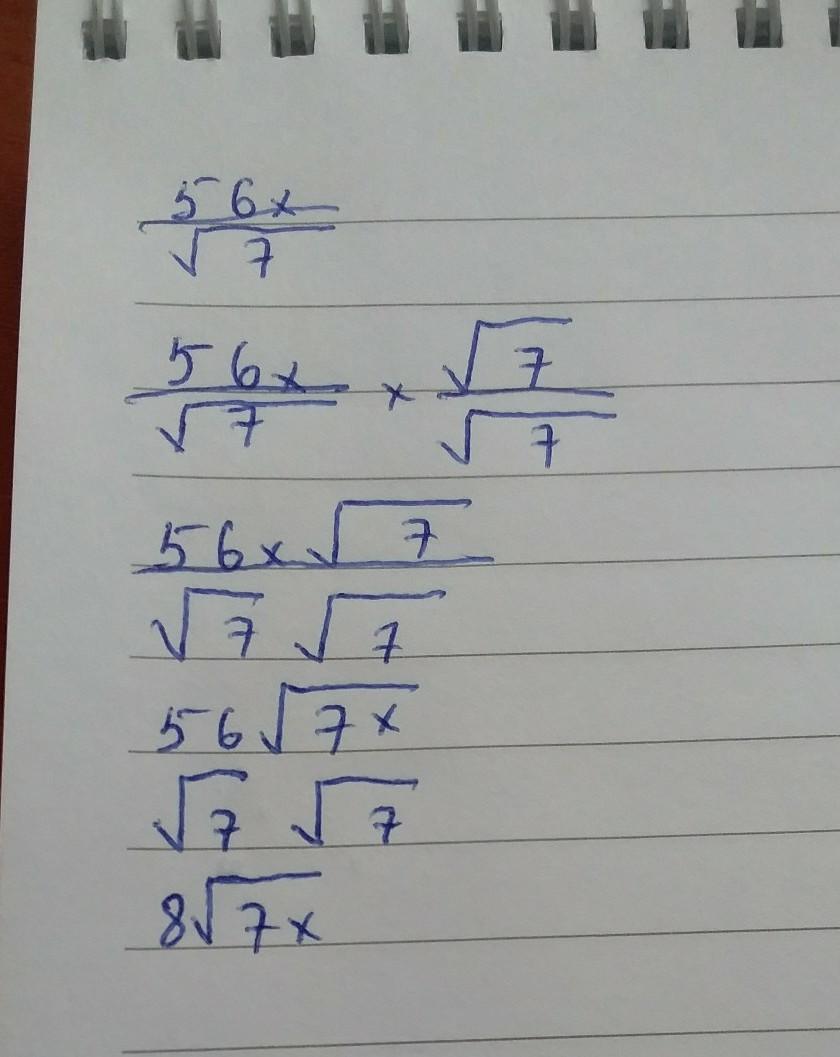 56x
√7
56x × √7
√7 √7
56x√7
√7 √7
56√7x
√7 √7
8√7x